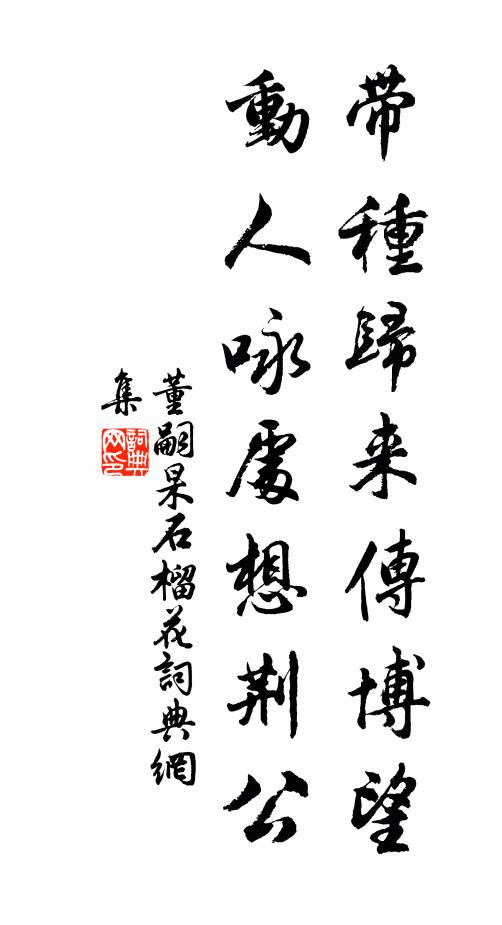 帶種歸来傳博望
動人咏處想荆公
董嗣杲石榴花詞典網
集
詞典
网印